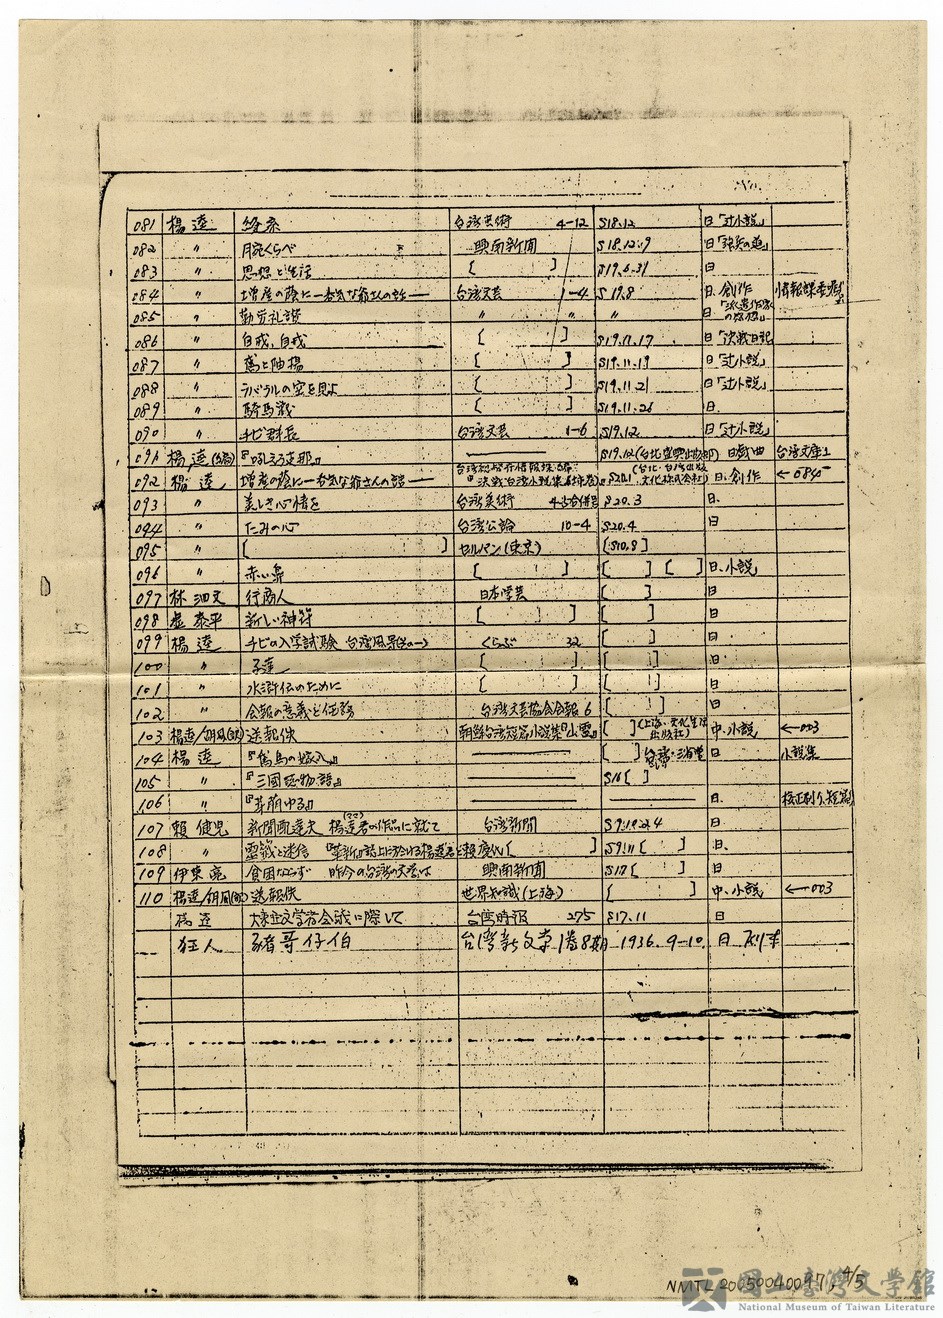 081 楊逵 台湾芸術 4-12 S18.12 日「辻小説」
082 〃 月宛くらべ 興南新聞 S18.12.9 日
083 〃 思想と生活 [ ] S19.6.31 日
084 〃 増産の蔭に一呑気な爺さんの話一 台湾文芸 1-4 S19.8 日.創作
085 〃 勤労礼讃 〃 〃 〃 日「派遣作家の
086 〃 自戒、自戒 [ ] S19.11.17 日「決戦日記」
087 〃 [ ] S19.11.19 日「辻小説」
088 〃 ラバウルの空を見よ [ ] S19.11.21 日「辻小説」
089 〃 騎馬戦 [ ] S19.11.26 日.
090 〃 チビ群長 台湾文芸 1-6 S19.12 日「辻小説」
091 楊逵(編) 『吼えろ支那』 —— S19.12(台北 盛興出版部) 日戯曲 台湾文庫1
092 楊逵 増産の蔭に一呑気な爺さんの話一 日.創作 ←084
093 〃 美しき心情を 台湾美術 4.5合併号 S20.3 日.
094 〃 たみの心 台湾公論 10-4 S20.4 日
095 〃 [ ] セルパン(東京) [S10.8]
096 〃 赤い鼻 [ ] [ ] [ ] 日、小説
097 林泗文 行商人 日本学芸 [ ] 日
098 盧泰平 新しい神符 [ ] [ ] 日
099 楊逵 チビの入学試験 台湾風景(その一) くらぶ 32 [ ] 日
100 〃 子達 [ ] [ ] 日
101 〃 水滸伝のために [ ] [ ] 日
102 〃 会報の意義と任務 台湾文芸協会会報 6 [ ] 日
103 楊逵/胡風(訳) 送報伕 朝鮮台湾短篇小説集『山霊』 [ ](上海・文化生活出版社) 中、小説 ←003
104 楊逵 『鵞鳥の嫁入』 —— [ ] 台北・三省堂 日 小説集
105 〃 『三國志物語』 —— S16[ ]
106 〃 『芽萠ゆる』 —— —— 日. 校正刷り、短篇
107 頼健児 新聞配達夫 楊逵君の作品に就て 台湾新聞 S9.12.4 日.
108 〃 霊籤と迷信 『革新』誌上に於ける楊逵君と頼慶代 [ ] S9.11[ ] 日、
109 伊東亮 貧困ならず 昨今の台湾の文芸は 興南新聞 S17[ ] 日
110 楊逵/胡風(訳) 送報伕 世界知識(上海) [ ] 中、小説 ←003
楊逵 大東亜文学者会議に際して 台湾時報 275 S17.11 日
狂人 豬哥仔伯 台湾新文学 1巻8期 1936.9-10. 日
NMTL20050040097, 4/5
國立臺灣文學館
National Museum of Taiwan Literature